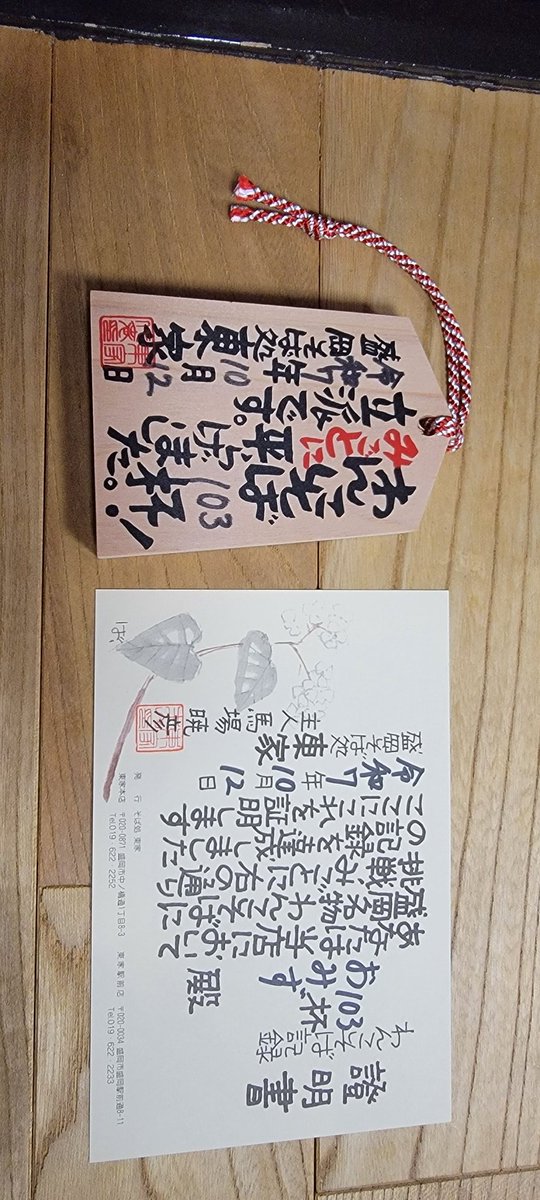 わんこそば
103杯!
みごとに
平らげました。
立派です。
令和7年10月12日
盛岡そば処東家
證明書
わんこそば記録
103杯
おみず 殿
あなたは当店において
盛岡名物わんこそばに
挑戦みごとに右の通り
この記録を達成しました
ここにこれを証明します
令和7年10月12日
盛岡そば処 東家
主人 馬場暁彦
発行 そば処 東家
東家本店 〒020-0871 盛岡市中ノ橋通1丁目8-3 Tel.019・622・2252
東家駅前店 〒020-0034 盛岡市盛岡駅前通8-11 Tel.019・622・2233